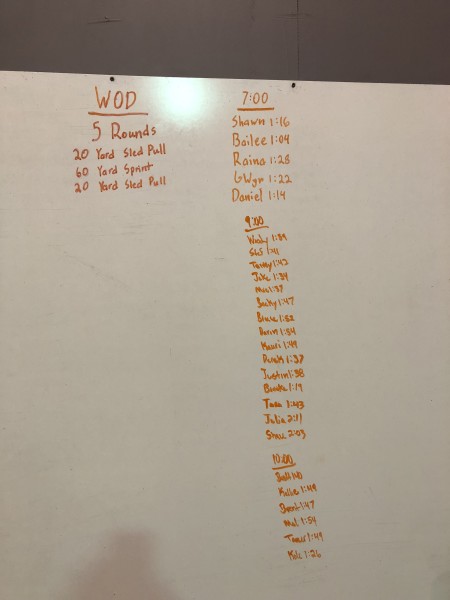 WOD
5 Rounds
20 Yard Sled Pull
60 Yard Sprint
20 Yard Sled Pull
7:00
Shawn 1:16
Bailee 1:04
Raina 1:28
GWyn 1:22
Daniel 1:14
9:00
1:41
Tammy 1:43
Jake 1:34
1:37
Becky 1:47
1:52
Darin 1:54
Kauri 1:49
1:37
Justin 1:38
Brooke 1:19
Tara 1:43
Julia 2:11
2:03
10:00
Kallie 1:49
Brent 1:47
Mel 1:54
1:49
Kole 1:26